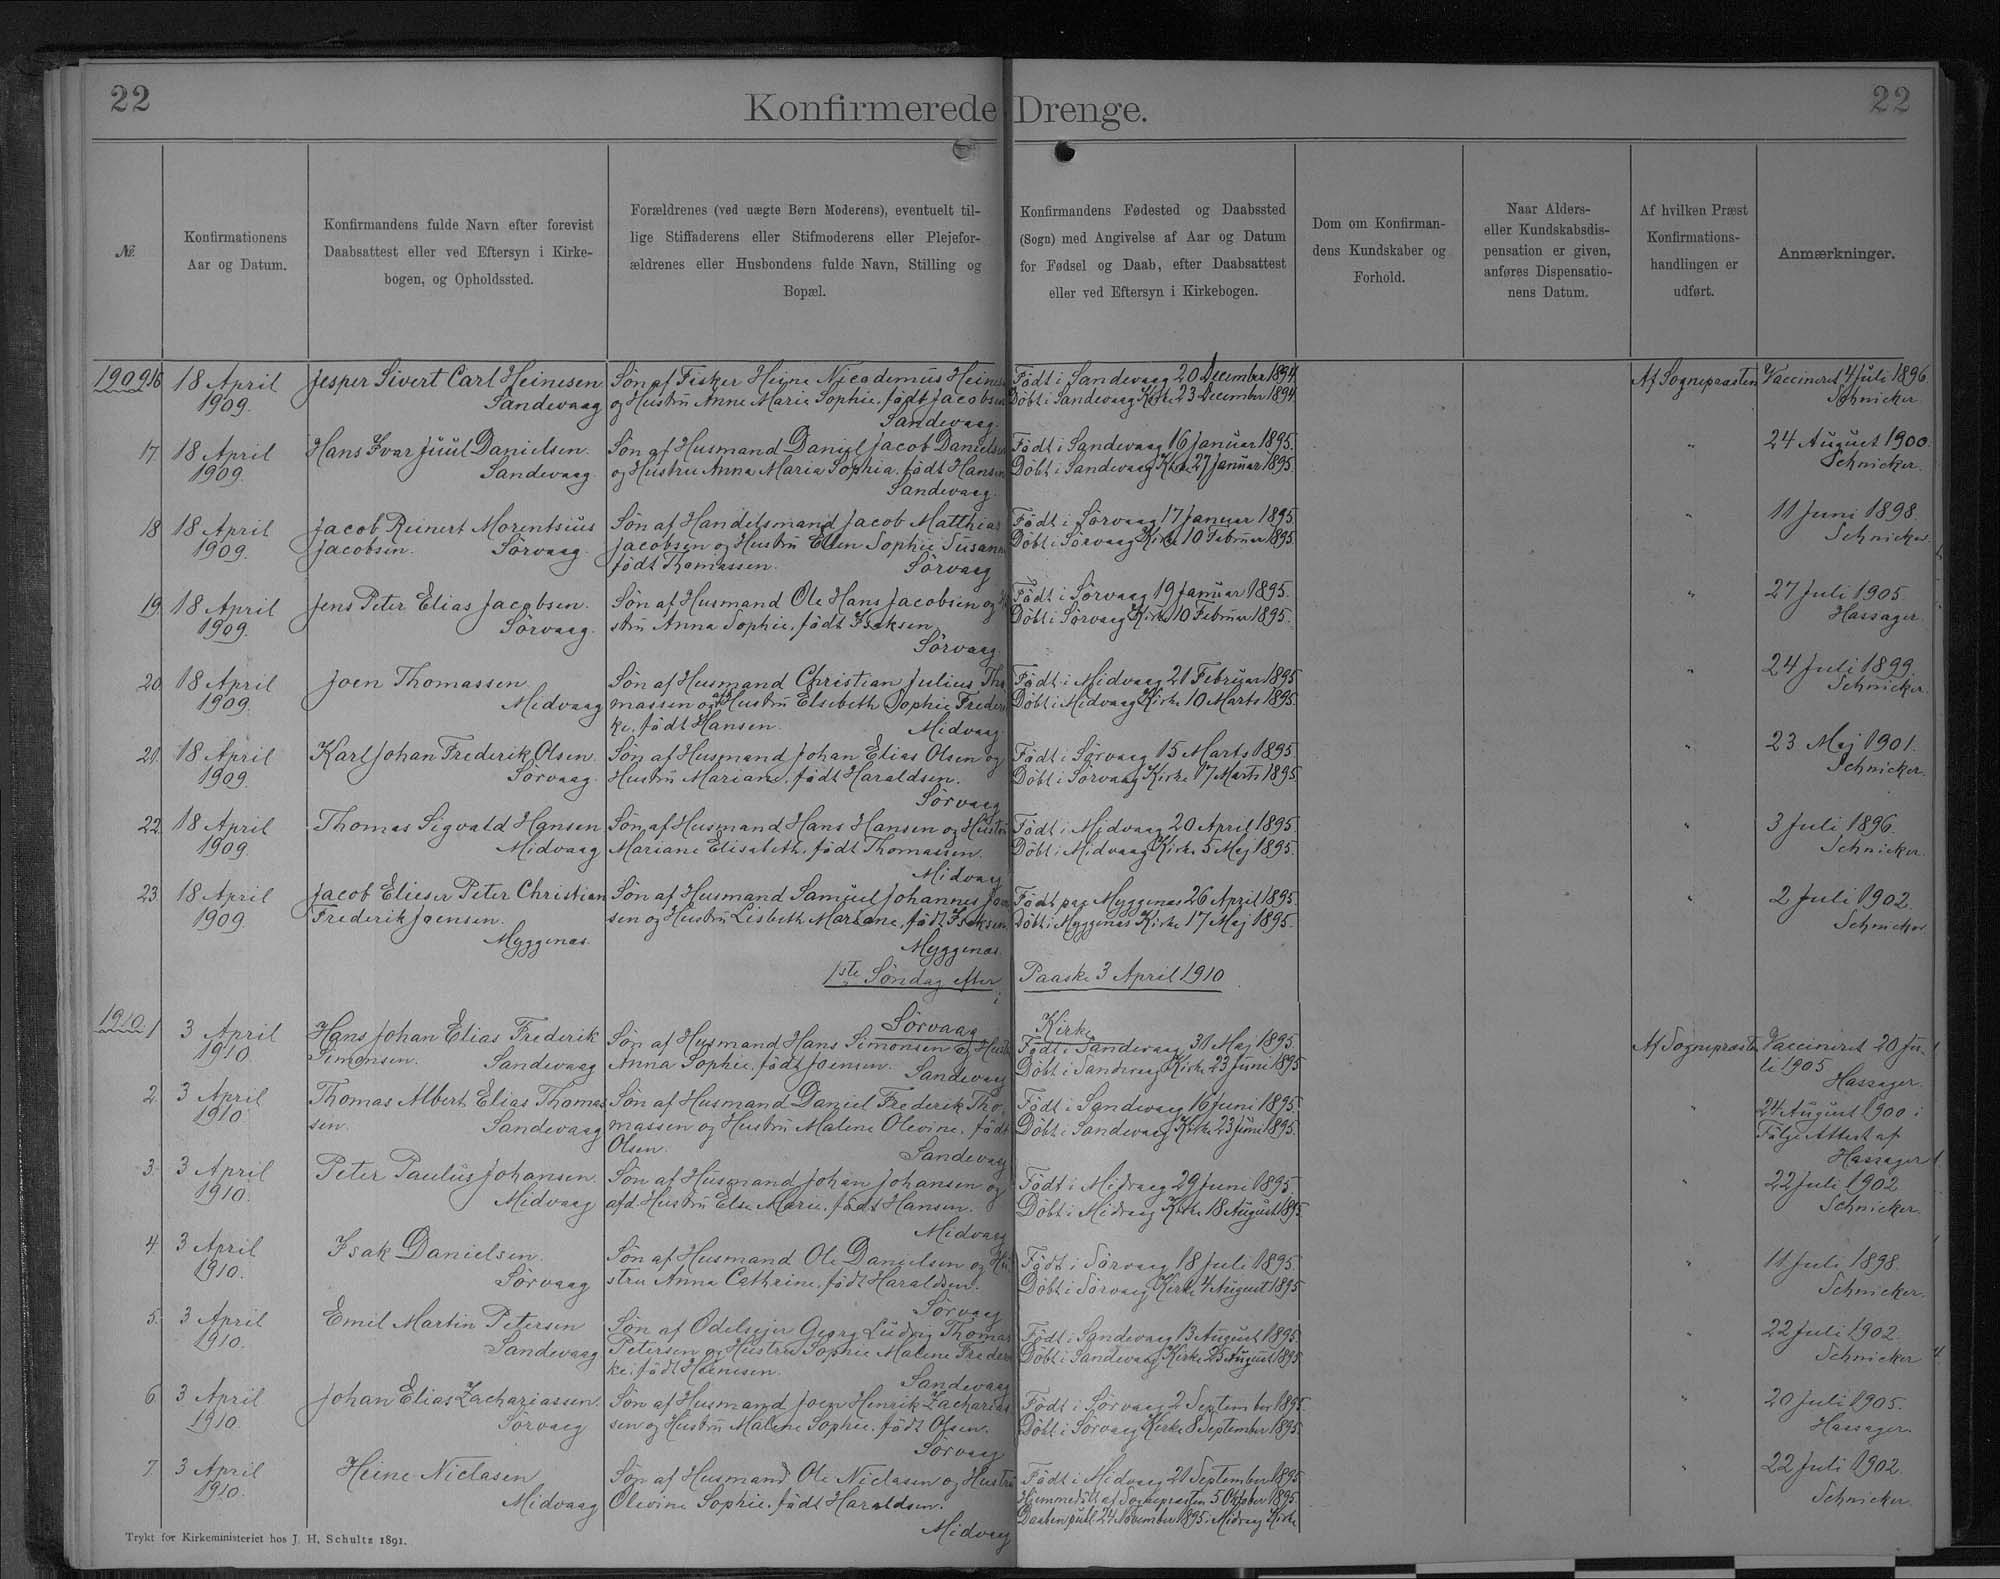 22
Konfirmerede Drenge.
22
№
Konfirmationens
Aar og Datum.
Konfirmandens fulde Navn efter forevist
Daabsattest eller ved Eftersyn i Kirke-
bogen, og Opholdssted.
Forældrenes (ved uægte Børn Moderens), eventuelt til-
lige Stiffaderens eller Stifmoderens eller Plejefor-
ældrenes eller Husbondens fulde Navn, Stilling og
Bopæl.
Konfirmandens Fødested og Daabssted
(Sogn) med Angivelse af Aar og Datum
for Fødsel og Daab, efter Daabsattest
eller ved Eftersyn i Kirkebogen.
Dom om Konfirman-
dens Kundskaber og
Forhold.
Naar Alders-
eller Kundskabsdis-
pensation er given,
anføres Dispensatio-
nens Datum.
Af hvilken Præst
Konfirmations-
handlingen er
udført.
Anmærkninger.
1909 16 18 April Jesper Sivert Carl Heinesen Søn af Fisker Heine Nicodemus Heines Født i Sandevaag 20 December 1894 Af Sognepræsten Vaccineret 4 Juli 1896
1909. Sandevaag og Hustru Anne Marie Sophie, født Jacobsen Døbt i Sandevaag Kirke 23 December 1894 Schnicker
Sandevaag.
17. 18 April Hans Ivar Juul Danielsen. Søn af Husmand Daniel Jacob Danielsen Født i Sandevaag 16 Januar 1895. " 24 August 1900.
1909. Sandevaag. og Hustru Anna Maria Sophia, født Hansen Døbt i Sandevaag Kirke 27 Januar 1895. Schnicker.
Sandevaag.
18 18 April Jacob Reinert Morentsius Søn af Handelsmand Jacob Matthias Født i Sörvaag 17 Januar 1895. " 11 Juni 1898.
1909. Jacobsen. Sörvaag. Jacobsen og Hustru Ellen Sophie Susanne Døbt i Sörvaag Kirke 10 Februar 1895. Schnicker.
født Thomassen. Sörvaag
19. 18 April Jens Peter Elias Jacobsen. Søn af Husmand Ole Hans Jacobsen og Hu Født i Sörvaag 19 Januar 1895. " 27 Juli 1905.
1909. Sörvaag. stru Anna Sophie, født Isaksen Døbt i Sörvaag Kirke 10 Februar 1895. Hassager.
Sörvaag.
20 18 April Joen Thomassen Søn af Husmand Christian Julius Tho Født i Midvaag 21 Februar 1895 " 24 Juli 1899.
1909. Midvaag massen og afd Hustru Elsebeth Sophie Frederi Døbt i Midvaag Kirke 10 Marts 1895. Schnicker.
ke, født Hansen. Midvaag.
21. 18 April Karl Johan Frederik Olsen. Søn af Husmand Johan Elias Olsen og Født i Sörvaag 15 Marts 1895 " 23 Maj 1901.
1909. Sörvaag. Hustru Mariane, født Haraldsen. Døbt i Sörvaag Kirke 17 Marts 1895 Schnicker.
Sörvaag
22. 18 April Thomas Sigvald Hansen Søn af Husmand Hans Hansen og Hustru Født i Midvaag 20 April 1895. " 3 Juli 1896.
1909. Midvaag Mariane Elisabeth, født Thomassen. Døbt i Midvaag Kirke 5 Maj 1895. Schnicker.
Midvaag
23. 18 April Jacob Elieser Peter Christian Søn af Husmand Samuel Johannes Joen Født paa Myggenæs 26 April 1895 " 2 Juli 1902.
1909. Frederik Joensen. sen og Hustru Lisbeth Mariane, født Isaksen Døbt i Myggenæs Kirke 17 Maj 1895. Schnicker
Myggenæs. Myggenæs.
1ste Søndag efter Paaske 3 April 1910
i
Sörvaag Kirke
1910. 1 3 April Hans Johan Elias Frederik Søn af Husmand Hans Simonsen og Hustru Født i Sandevaag 31 Maj 1895. Af Sognepræsten Vaccineret 20 Ju-
1910. Simonsen. Sandevaag Anna Sophie, født Joensen. Sandevaag Døbt i Sandevaag Kirke 23 Juni 1895 li 1905
Hassager.
2. 3 April Thomas Albert Elias Thomas Søn af Husmand Daniel Frederik Tho Født i Sandevaag 16 Juni 1895. " 24 August 1900 i
1910. sen. Sandevaag massen og Hustru Malene Olevine, født Døbt i Sandevaag Kirke 23 Juni 1895. Følge Attest af
Olsen. Sandevaag Hassager
3. 3 April Peter Paulus Johansen. Søn af Husmand Johan Johansen og Født i Midvaag 29 Juni 1895 " 22 Juli 1902
1910. Midvaag afd. Hustru Else Marie, født Hansen. Døbt i Midvaag Kirke 18 August 1895. Schnicker.
Midvaag
4. 3 April Isak Danielsen. Søn af Husmand Ole Danielsen og Hu Født i Sörvaag 18 Juli 1895. " 11 Juli 1898.
1910. Sörvaag stru Anna Cathrine, født Haraldsen. Døbt i Sörvaag Kirke 4 August 1895 Schnicker.
Sörvaag
5. 3 April Emil Martin Petersen Søn af Odelsejer Georg Ludvig Thomas Født i Sandevaag 13 August 1895 " 22 Juli 1902.
1910. Sandevaag Petersen og Hustru Sophie Malene Frederi Døbt i Sandevaag Kirke 25 August 1895 Schnicker
ke, født Heinesen. Sandevaag
6. 3 April Johan Elias Zachariassen. Søn af Husmand Joen Henrik Zacharias Født i Sörvaag 2 September 1895. " 20 Juli 1905.
1910. Sörvaag sen og Hustru Malene Sophie, født Olsen. Døbt i Sörvaag Kirke 8 September 1895. Hassager.
Sörvaag
7. 3 April Heine Niclasen Søn af Husmand Ole Niclasen og Hustru Født i Midvaag 21 September 1895 " 22 Juli 1902.
1910. Midvaag Olevine Sophie, født Haraldsen. Hjemmedøbt af Sognepræsten 5 Oktober 1895. Schnicker.
Midvaag Daaben publ. 24 November 1895 i Midvaag Kirke
Trykt for Kirkeministeriet hos J. H. Schultz 1891.